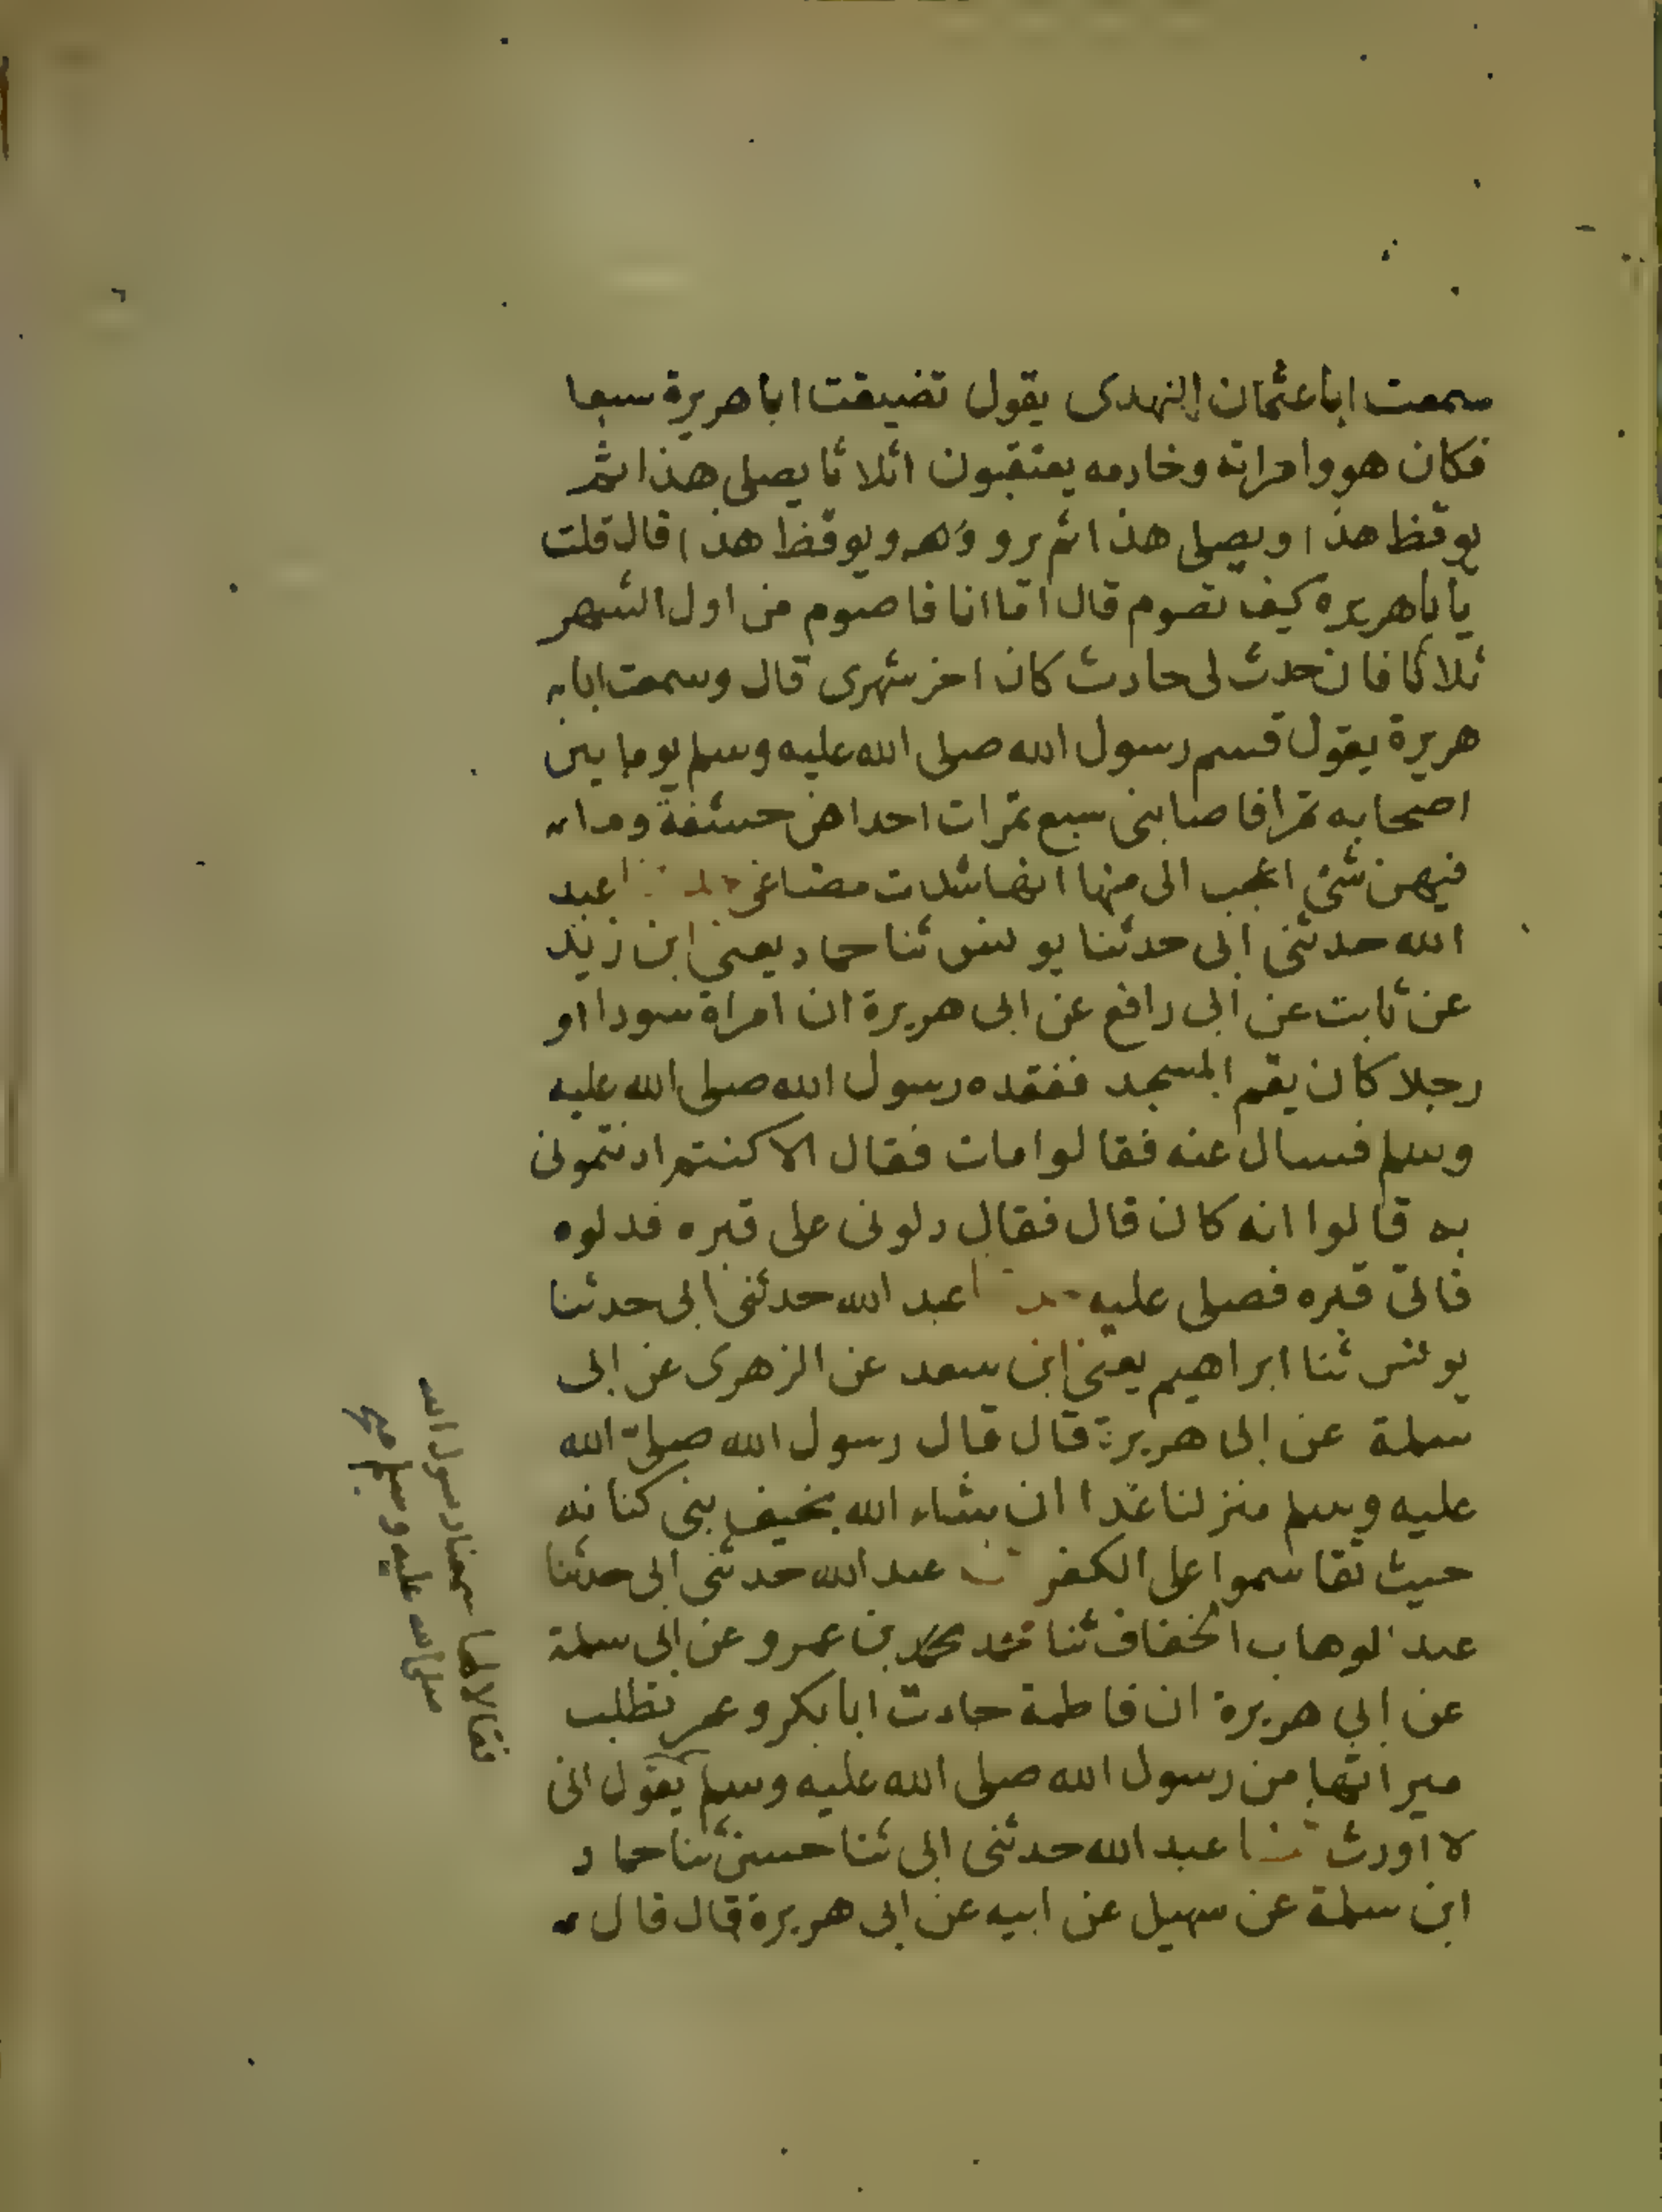 سمعت ابا عثمان النهدى يقول تضيفت ابا هريرة سبعا
فكان هو وامراته وخادمه يعتقبون اثلاثا يصلى هذا ثم
يوقظ هذا ويصلى هذا ثم يوقظ هذا قال قلت
يا با هريره كيف تصوم قال اما انا فاصوم من اول الشهر
ثلاثا فان حدث لى حادث كان اخر شهرى قال وسمعت ابا
هريرة يقول قسم رسول الله صلى الله عليه وسلم يوما بين
اصحابه تمرا فاصابنى سبع تمرات احداهن حشفة وما
فيهن شئ اعجب الى منها انها شدت مضاغى عبد
الله حدثنى ابى حدثنا يونس ثنا حماد يعنى ابن زيد
عن ثابت عن ابى رافع عن ابى هريرة ان امراة سودا او
رجلا كان يقم المسجد ففقده رسول الله صلى الله عليه
وسلم فسال عنه فقالوا مات فقال الا كنتم اذنتمونى
به قالوا انه كان قال فقال دلونى على قبره فدلوه
فاتى قبره فصلى عليه عبد الله حدثنى ابى حدثنا
يونس ثنا ابراهيم يعنى ابن سعد عن الزهرى عن ابى
سلمة عن ابى هريرة قال قال رسول الله صلى الله
عليه وسلم منزلنا غدا ان شاء الله بخيف بنى كنانه
حيث تقاسموا على الكفر ثنا عبد الله حدثنى ابى حدثنا
عبد الوهاب الخفاف ثنا محمد بن عمرو عن ابى سلمة
عن ابى هريرة ان فاطمة جاءت ابا بكر وعمر تطلب
ميراثها من رسول الله صلى الله عليه وسلم يقول انى
لا اورث ثنا عبد الله حدثنى ابى ثنا حسن ثنا حماد
ابن سلمة عن سهيل عن ابيه عن ابى هريرة قال قال
فقالا لها سمعنا رسول الله
صلى الله عليه وسلم صح